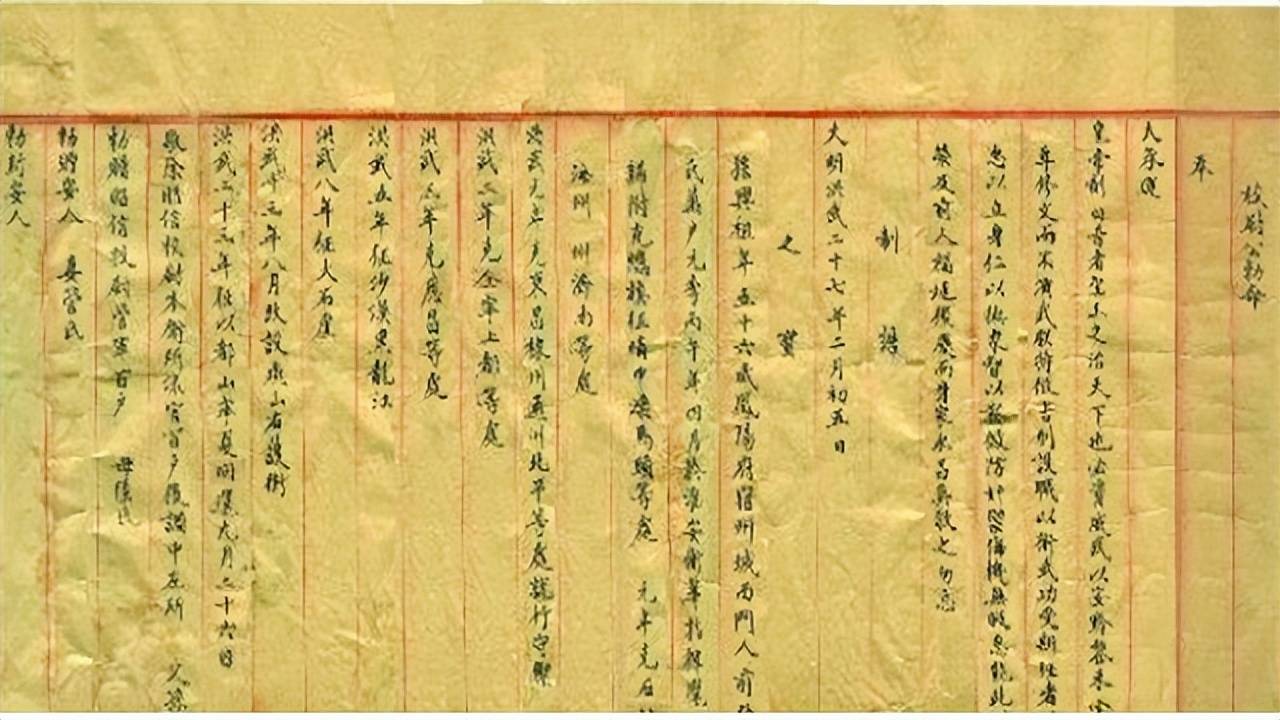 校尉公勅命
奉
天承運
皇帝制曰昔者聖王之治天下也必資威武以安黔黎未
專修文而不演武朕特倣古制設職以衛武功受斯任者
忠以立身仁以撫衆智以察微防姦禦侮機無暇怠能此
榮及前人福延後嗣而身家永昌矣敬之勿怠
制誥
之寶
大明洪武二十七年二月初五日
孫興祖年五十六歲鳳陽府宿州城西門人前
民義戶元季丙午年四月於淮安衛華指揮處
歸附充總旗征
等處 元年克
州濟南等處
洪武元年克東昌棣川通州北平等處就行守禦
洪武二年克全寧上都等處
洪武三年克應昌等處
洪武五年征沙漠黑龍江
洪武八年征大石崖
洪武十三年八月改設燕山右護衛
洪武二十三年征以都山本夏間選九月二十六日
欽除昭信校尉本衛所流官百戶後調中左所 父孫
勅贈昭信校尉管軍百戶 母陳氏
勅贈安人 妻管氏
勅封安人